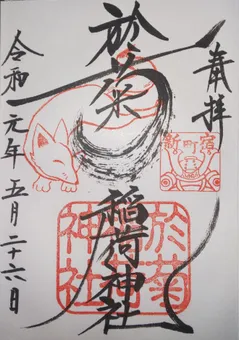 奉拝
新町宿
於菊
稲荷神社
於菊
神社
令和元年五月二十六日